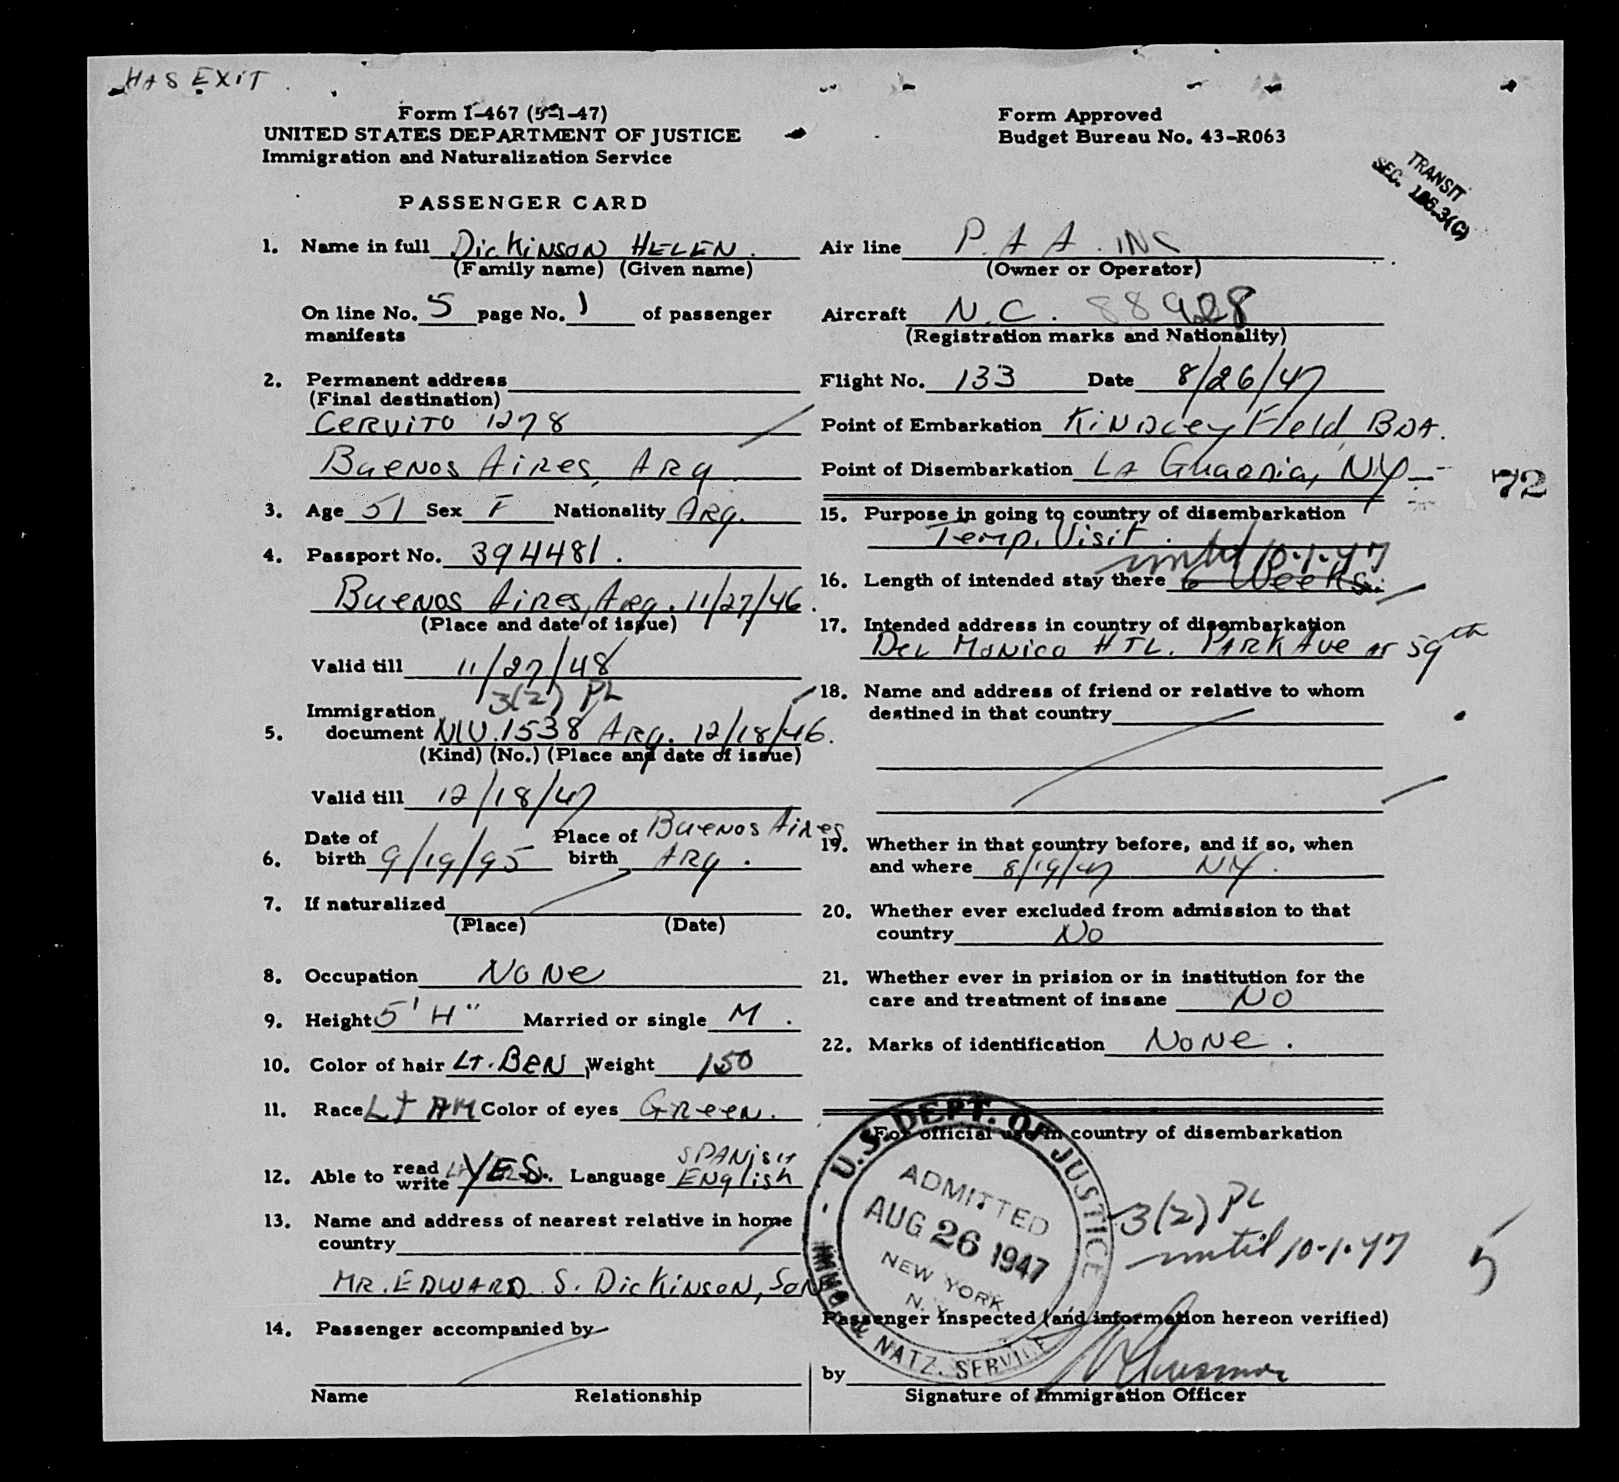 HAS EXIT
Form I-467 (5-1-47)
UNITED STATES DEPARTMENT OF JUSTICE
Immigration and Naturalization Service
PASSENGER CARD
Form Approved
Budget Bureau No. 43-R063
TRANSIT
SEC. 186.3(C)
1. Name in full Dickinson HELEN.
(Family name) (Given name)
On line No. 5 page No. 1 of passenger
manifests
2. Permanent address
(Final destination)
Cervito 1278
Buenos Aires, Arg.
3. Age 51 Sex F Nationality Arg.
4. Passport No. 394481.
Buenos Aires, Arg. 11/27/46.
(Place and date of issue)
Valid till 11/27/48
3(2) PL
Immigration
5. document NIV. 1538 Arg. 12/18/46.
(Kind) (No.) (Place and date of issue)
Valid till 12/18/47
Date of Place of Buenos Aires
6. birth 9/19/95 birth Arg.
7. If naturalized
(Place) (Date)
8. Occupation None
9. Height 5' 4" Married or single M.
10. Color of hair LT. BRN Weight 150
11. Race LT AM Color of eyes Green.
SPANISH
12. Able to read write YES. Language English
13. Name and address of nearest relative in home
country
MR. EDWARD S. DICKINSON, SON
14. Passenger accompanied by
Name Relationship
Air line P.A A. INC
(Owner or Operator)
Aircraft N.C. 88928
(Registration marks and Nationality)
Flight No. 133 Date 8/26/47
Point of Embarkation Kindley Field, BDA.
Point of Disembarkation La Guardia, NY
72
15. Purpose in going to country of disembarkation
Temp. Visit.
until 10-1-47
16. Length of intended stay there 6 Weeks.
17. Intended address in country of disembarkation
Del Monico HTL. Park Ave at 59th
18. Name and address of friend or relative to whom
destined in that country
19. Whether in that country before, and if so, when
and where 8/19/47 NY.
20. Whether ever excluded from admission to that
country No
21. Whether ever in prision or in institution for the
care and treatment of insane NO
22. Marks of identification None.
For official use in country of disembarkation
U.S. DEPT. OF JUSTICE
ADMITTED
AUG 26 1947
NEW YORK
N. Y.
IMMG. & NATZ. SERVICE
3(2) PL
until 10-1-47
5
Passenger inspected (and information hereon verified)
by
Signature of Immigration Officer